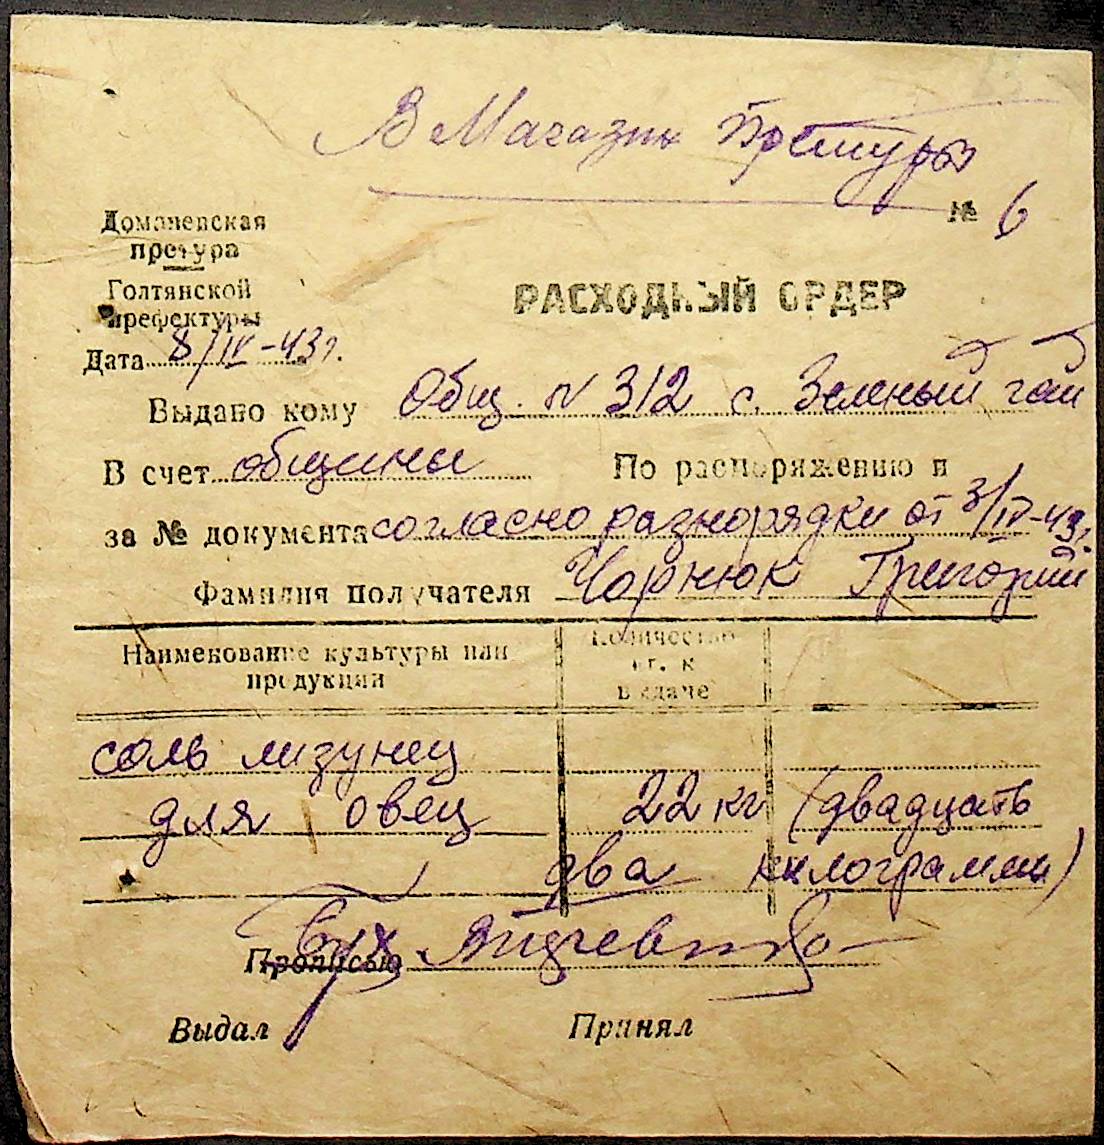 В Магазин Претуры
№ 6
Доманевская
претура
Голтянской
префектуры
РАСХОДНЫЙ ОРДЕР
Дата 8/IV-43г.
Выдано кому Общ. N 312 с. Зеленый гай
В счет общины По распоряжению и
за № документа согласно разнорядки от 3/IV-43г.
Фамилия получателя Чорнюк Григорий
Наименование культуры или
продукции
Количество
кг. к
выдаче
соль лизунец
для овец 22 кг (двадцать
два килограмми)
Прописью Бух.
Выдал Принял